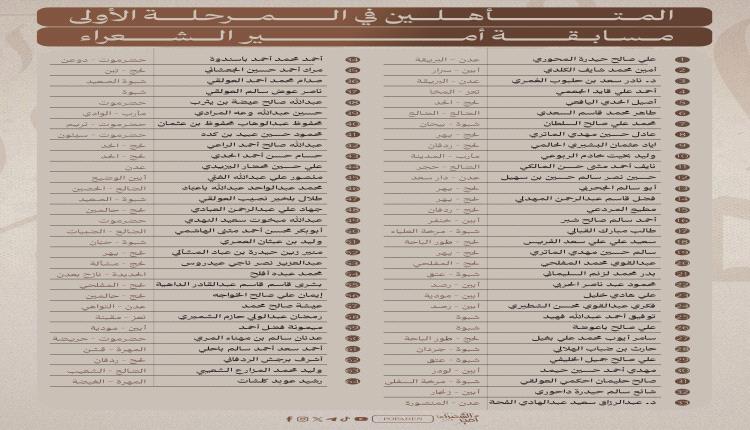 المتأهلين في المرحلة الأولى
مسابقة أمير الشعراء
1 علي صالح حيدرة المحوري عدن - البريقة
2 أمين محمد شايف الكلدي أبين - سرار
3 د. نادر سعد بن حلبوب العمري عدن - البريقة
4 أحمد علي قايد الجعمي تعز - المخا
5 أصيل الحدي اليافعي لحج - الحد
6 طاهر محمد قاسم السعدي الضالع - الضالع
7 محمد علي صالح السلطان شبوة - بيحان
8 عادل حسين مهدي الماتري لحج - يهر
9 اياد عثمان البشيري الحالمي لحج - حالمين
10 وليد بخيت خادم الربوعي مأرب - المدينة
11 نايف أحمد مثنى حسن المالكي الضالع - حجر
12 حسين نصر سالم حسين بن سهيل عدن - دار سعد
13 أبو سالم الجحربي لحج - يهر
14 فضل قاسم عبدالرحمن المهدلي لحج - يهر
15 مطيع المردعي لحج - ردفان
16 أحمد سالم صالح شبر أبين - خنفر
17 طالب مبارك القبالي شبوة - مرخة العلياء
18 سعيد علي علي سعد الفريس لحج - طور الباحة
19 سالم حسين مهدي الماتري لحج - يهر
20 عبدالقوي محمد المفلحي لحج - المفلحي
21 بدر محمد لزنم السليماني شبوة - عتق
22 محمود عبد ناصر الحربي أبين - رصد
23 علي هادي خليل أبين - مودية
24 فكري عبدالقوي محسن الشطيري أبين - رصد
25 توفيق أحمد عبدالله فهيد شبوة
26 علي صالح باعوضة شبوة
27 سامر أيوب محمد علي بغيل لحج - طور الباحة
28 حارث بن ضباب الهلالي شبوة - جردان
29 علي صالح جميل الخليفي شبوة - عتق
30 مهدي أحمد حسين حيمد أبين - لودر
31 صالح حليمان احكمي العولقي شبوة - مرخة السفلى
32 شائع سالم حيدرة داحوري أبين - زنجبار
33 د. عبدالرزاق سعيد عبدالهادي القحة عدن - المنصورة
34 أحمد محمد أحمد باسندوة حضرموت - دوعن
35 مراد أحمد حسين الجعشاني لحج - تبن
36 صدام محمد أحمد العولقي شبوة الصعيد
37 ناصر عوض سالم العولقي شبوة
38 عبدالله صالح عيضة بن يثرب حضرموت
39 حسين عبدالله وعه المرادي مأرب - الوادي
40 محفوظ عبدالوهاب محفوظ بن عثمان حضرموت - تريم
41 محمود حسين عبيد بن كده حضرموت - سيئون
42 عبدالله صالح أحمد الراعي لحج - الحد
43 حسام حسن أحمد الحدي لحج - الحد
44 علي حسين مختار اليزيدي عدن
45 منصور علي عبدالله الفتي أبين الوضيع
46 محمد عبدالواحد عبدالله باعباد الضالع - الحصين
47 طلال بلخير نجيب العولقي شبوة - الصعيد
48 جهاد علي عبدالرحمن العبادي لحج - حالمين
49 عبدالله مبخوت سعيد النهدي حضرموت
50 أبوبكر محسن أحمد مثنى الهاشمي الضالع - الضبيات
51 وليد بن عيثان العمري شبوة - حنان
52 منير زين حيدرة بن عباد المشألي لحج - يهر
53 عبدالعزيز نصر ناجي عيدروس لحج - مشألة
54 محمد عبده أفلح الحديدة - نازح بعدن
55 بشرى قاسم قاسم عبدالقادر الداهية لحج - المفلحي
56 إيمان علي صالح الخواجه لحج - حالمين
57 عيشة صالح محمد عدن - التواهي
58 رمضان عبدالولي حازم الشميري تعز - مقبنة
59 ميمونة فضل أحمد أبين - مودية
60 عدنان سالم بن مهناء المري حضرموت - حريضة
61 أحمد سعد أحمد سالم باحلي المهرة - قشن
62 أشرف برجش الردفاني لحج - ردفان
63 وليد محمد المزارع الشعيبي الضالع - الشعيب
64 رشيد عويد كلشات المهرة - الغيضة